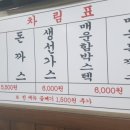 차림표
돈까스
생선가스
매운함박스텍
매운돈
5,500원
6,000원
6,000원
※ 전 메뉴 곱빼기 1,500원 추가